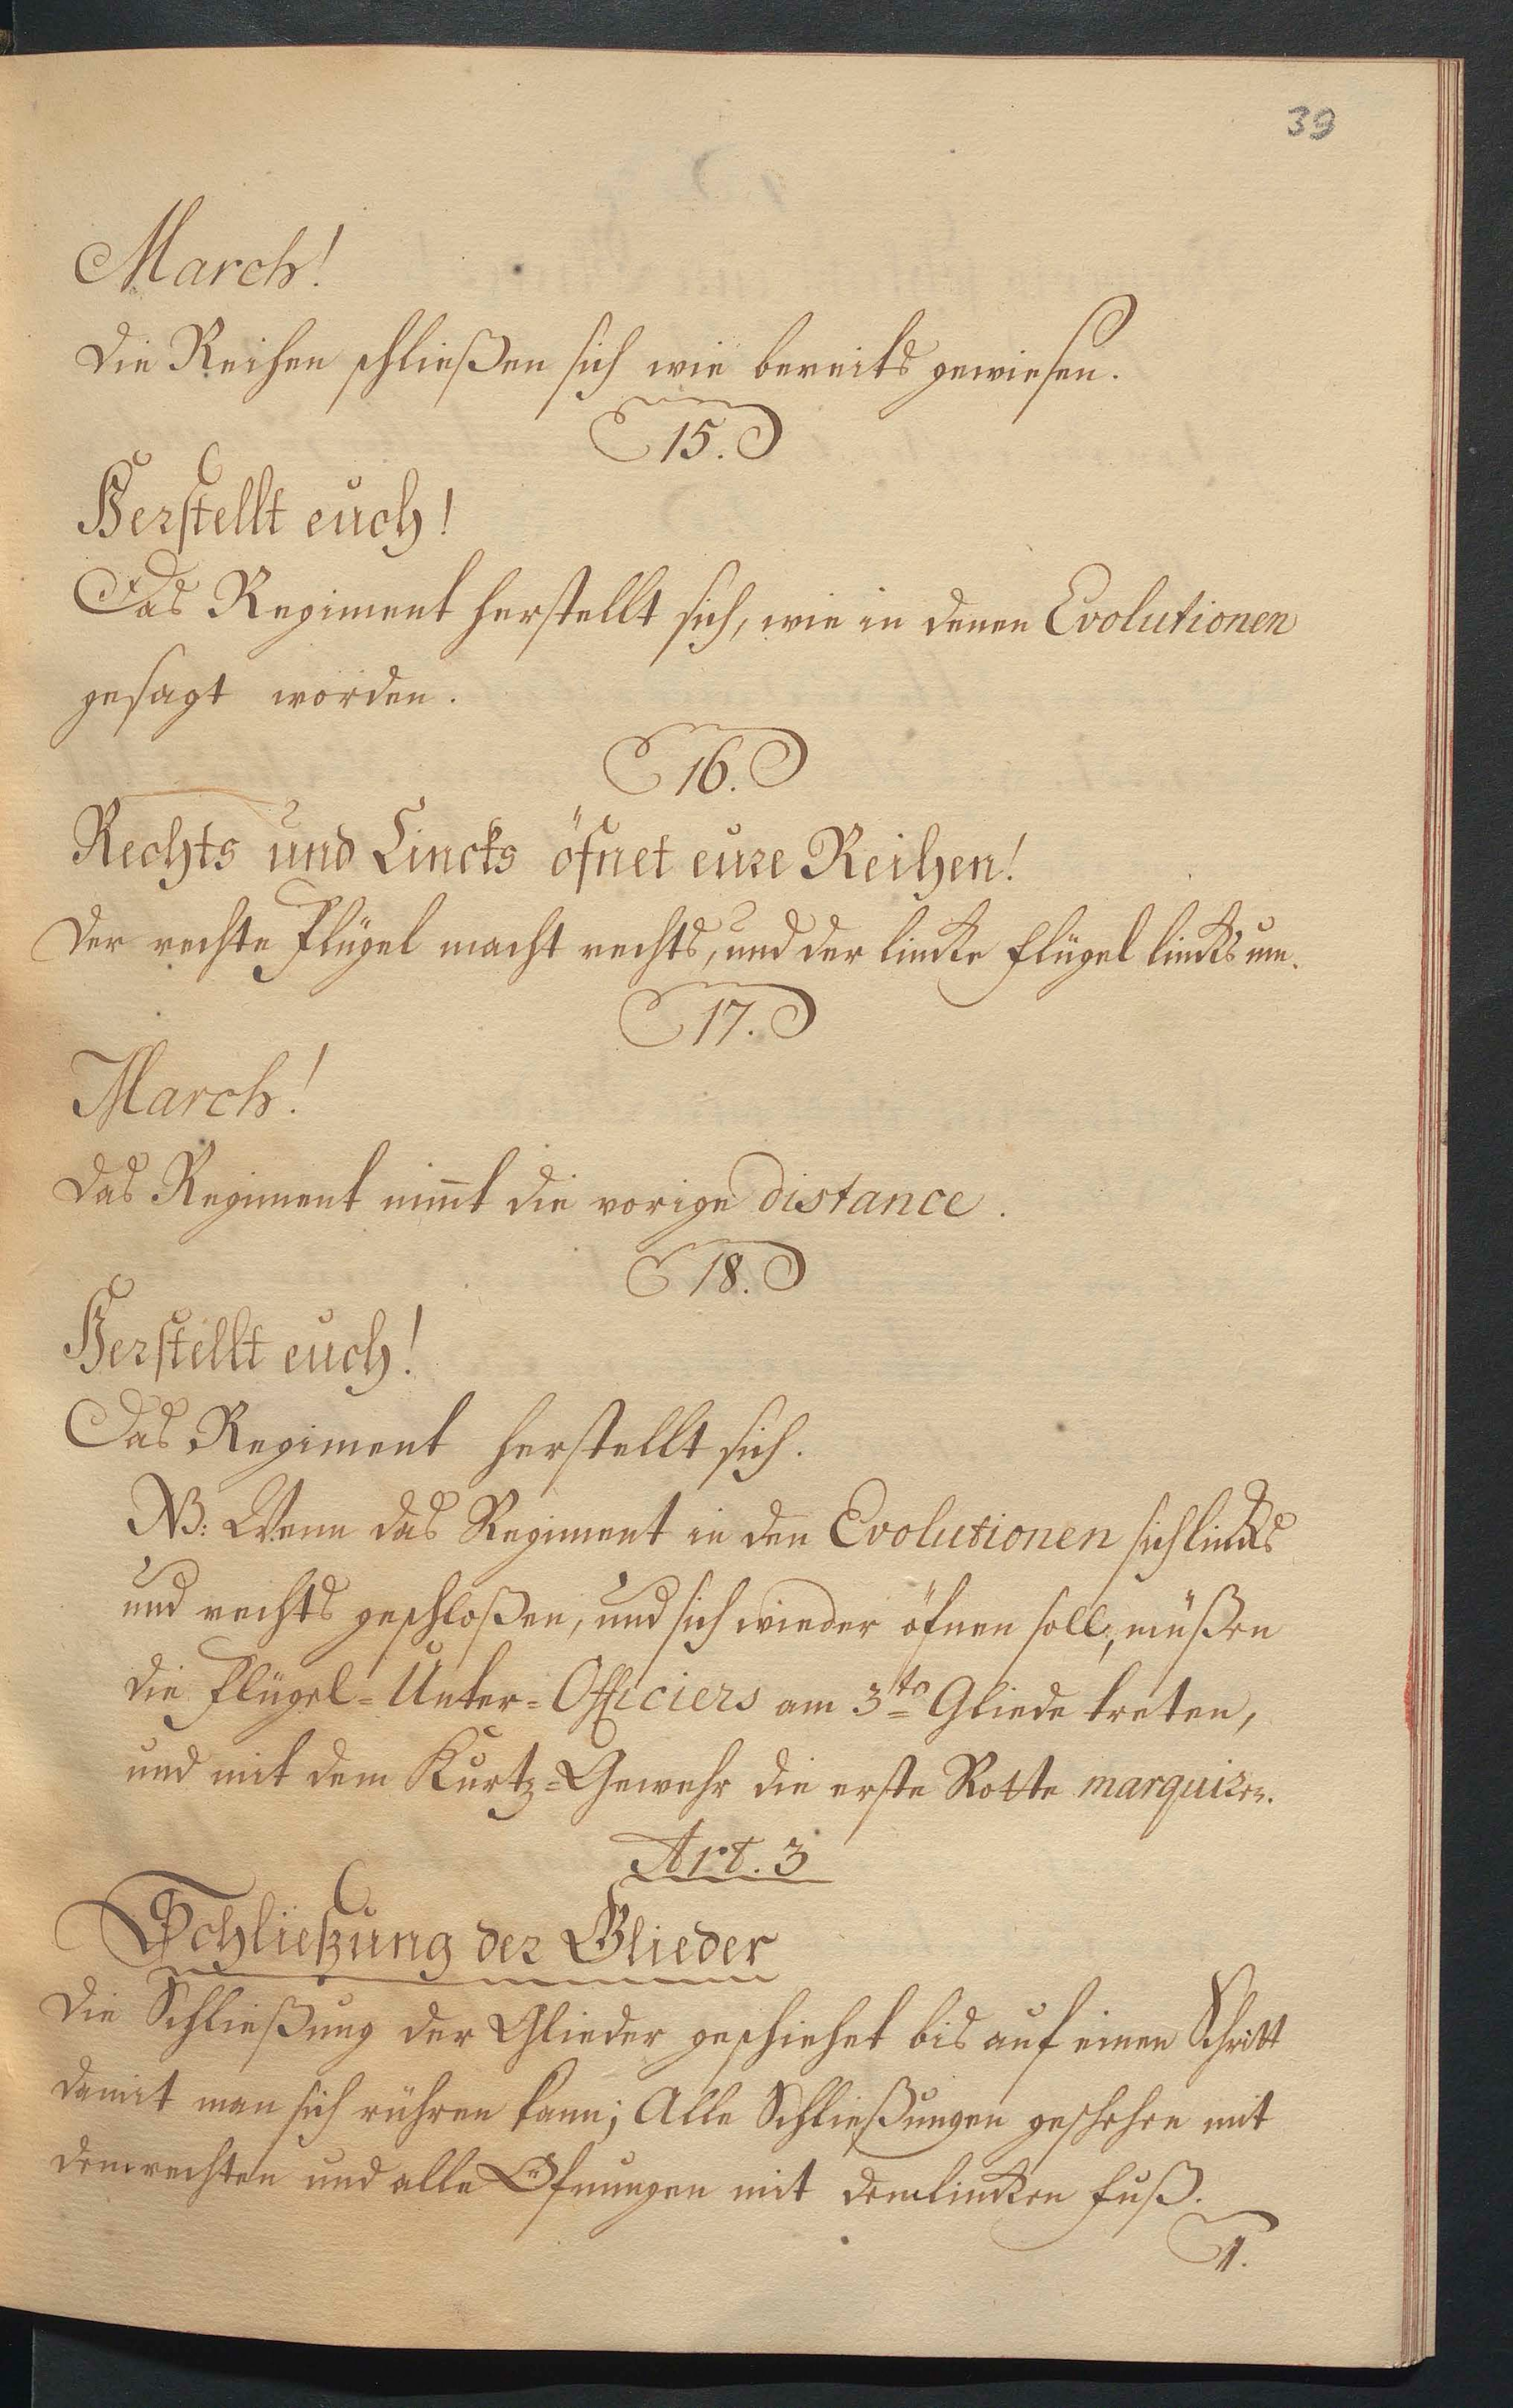 39
March!
die Reihen schließen sich wie bereits gewiesen.
15.
Herstellt euch!
Das Regiment herstellt sich, wie in denen Evolutionen
gesagt worden.
16.
Rechts und Lincks öfnet eure Reihen!
der rechte Flügel macht rechts, und der lincke Flügel lincks um.
17.
March!
das Regiment nim̄t die vorige distance.
18.
Herstellt euch!
Das Regiment herstellt sich.
NB: Wenn das Regiment in den Evolutionen sich lincks
und rechts geschloßen, und sich wieder öfnen soll, müßen
die Flügel=Unter=Officiers am 3te Gliede treten,
und mit dem Kurtz=Gewehr die erste Rotte marquiren.
Art. 3
Schließung der Glieder
die Schließung der Glieder geschiehet bis auf einen Schritt
damit man sich rühren kann; Alle Schließungen geschehen mit
dem rechten und alle Öfnungen mit dem lincken Fuß.
1.